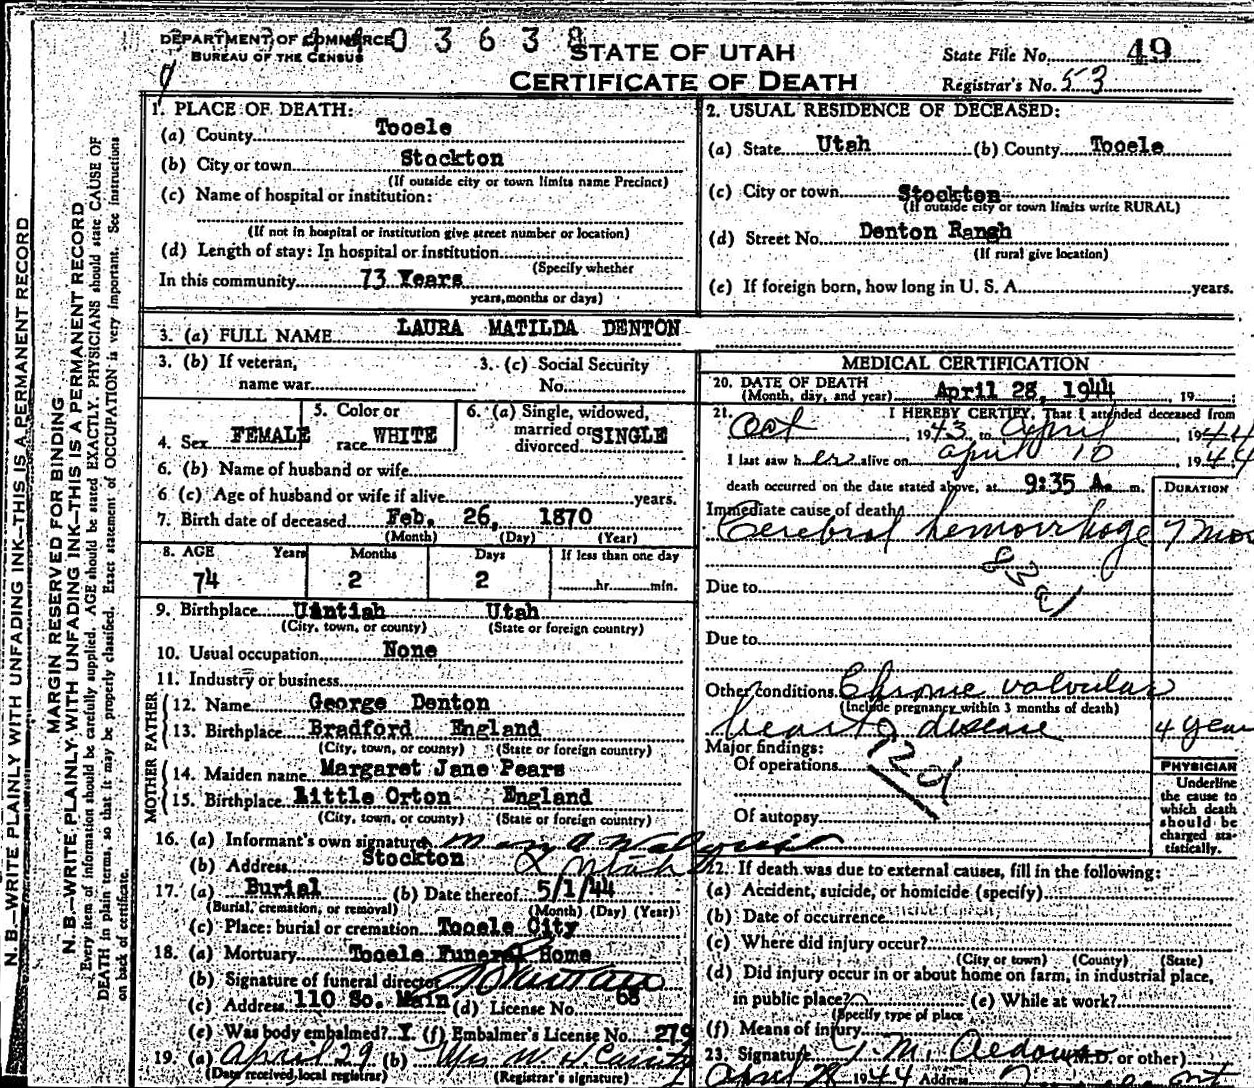 DEPARTMENT OF COMMERCE
BUREAU OF THE CENSUS
3638
STATE OF UTAH
CERTIFICATE OF DEATH
State File No. 49
Registrar's No. 53
N.B.—WRITE PLAINLY WITH UNFADING INK—THIS IS A PERMANENT RECORD
MARGIN RESERVED FOR BINDING
N.B.—WRITE PLAINLY WITH UNFADING INK—THIS IS A PERMANENT RECORD
Every item of information should be carefully supplied. AGE should be stated EXACTLY. PHYSICIANS should state CAUSE OF
DEATH in plain terms, so that it may be properly classified. Exact statement of OCCUPATION is very important. See instructions
on back of certificate.
1. PLACE OF DEATH:
(a) County Tooele
(b) City or town Stockton
(If outside city or town limits name Precinct)
(c) Name of hospital or institution:
(If not in hospital or institution give street number or location)
(d) Length of stay: In hospital or institution
(Specify whether
In this community 73 Years
years, months or days)
2. USUAL RESIDENCE OF DECEASED:
(a) State Utah (b) County Tooele
(c) City or town Stockton
(If outside city or town limits write RURAL)
(d) Street No. Denton Rangh
(If rural give location)
(e) If foreign born, how long in U. S. A. years.
3. (a) FULL NAME LAURA MATILDA DENTON
3. (b) If veteran,
name war
3. (c) Social Security
No.
4. Sex FEMALE
5. Color or
race WHITE
6. (a) Single, widowed,
married or
divorced SINGLE
6. (b) Name of husband or wife
6 (c) Age of husband or wife if alive years.
7. Birth date of deceased Feb. 26, 1870
(Month) (Day) (Year)
8. AGE Years Months Days If less than one day
74 2 2 hr. min.
9. Birthplace Uintiah Utah
(City, town, or county) (State or foreign country)
10. Usual occupation None
11. Industry or business
FATHER
12. Name George Denton
13. Birthplace Bradford England
(City, town, or county) (State or foreign country)
MOTHER
14. Maiden name Margaret Jane Pears
15. Birthplace Little Orton England
(City, town, or county) (State or foreign country)
16. (a) Informant's own signature Mary A
(b) Address Stockton Utah
17. (a) Burial (b) Date thereof 5/1/44
(Burial, cremation, or removal) (Month) (Day) (Year)
(c) Place: burial or cremation Tooele City
18. (a) Mortuary Tooele Funeral Home
(b) Signature of funeral director
(c) Address 110 So. Main (d) License No. 68
(e) Was body embalmed? Y. (f) Embalmer's License No. 279
19. (a) April 29 (b) Mrs W
(Date received local registrar) (Registrar's signature)
MEDICAL CERTIFICATION
20. DATE OF DEATH
(Month, day, and year) April 28, 1944, 19
21. I HEREBY CERTIFY, That I attended deceased from
Oct, 1943, to April, 1944
I last saw her alive on April 10, 1944
death occurred on the date stated above, at 9:35 A. m.
DURATION
Immediate cause of death
Cerebral hemorrhage 7 mos
83a1
Due to
Due to
Other conditions Chronic valvular
(Include pregnancy within 3 months of death)
heart disease 4 year
Major findings:
Of operations
Of autopsy
PHYSICIAN
Underline
the cause to
which death
should be
charged sta-
tistically.
22. If death was due to external causes, fill in the following:
(a) Accident, suicide, or homicide (specify)
(b) Date of occurrence
(c) Where did injury occur?
(City or town) (County) (State)
(d) Did injury occur in or about home on farm, in industrial place,
in public place? (e) While at work?
(Specify type of place
(f) Means of injury
23. Signature M. (M.D. or other)
April 28 1944 Address